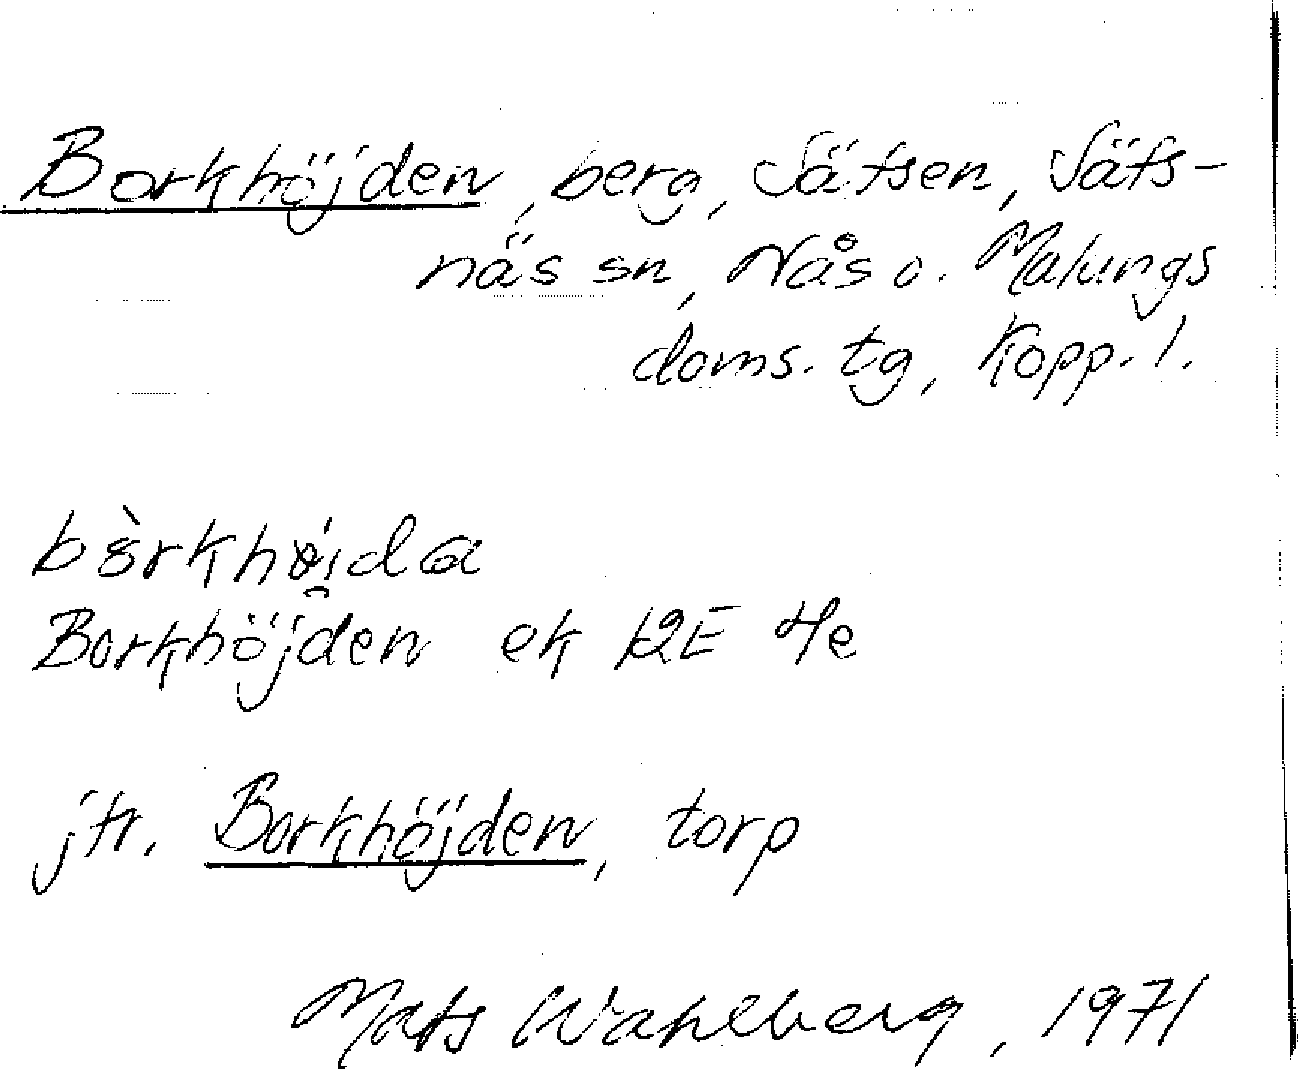 Borkhöjden, berg, Sätsen, Säfs-
näs sn, Nås o. Malungs
doms. tg, Kopp. l.
Borkhöjden ek 12E 4e
jfr. Borkhöjden, torp
Mats Wahlberg, 1971